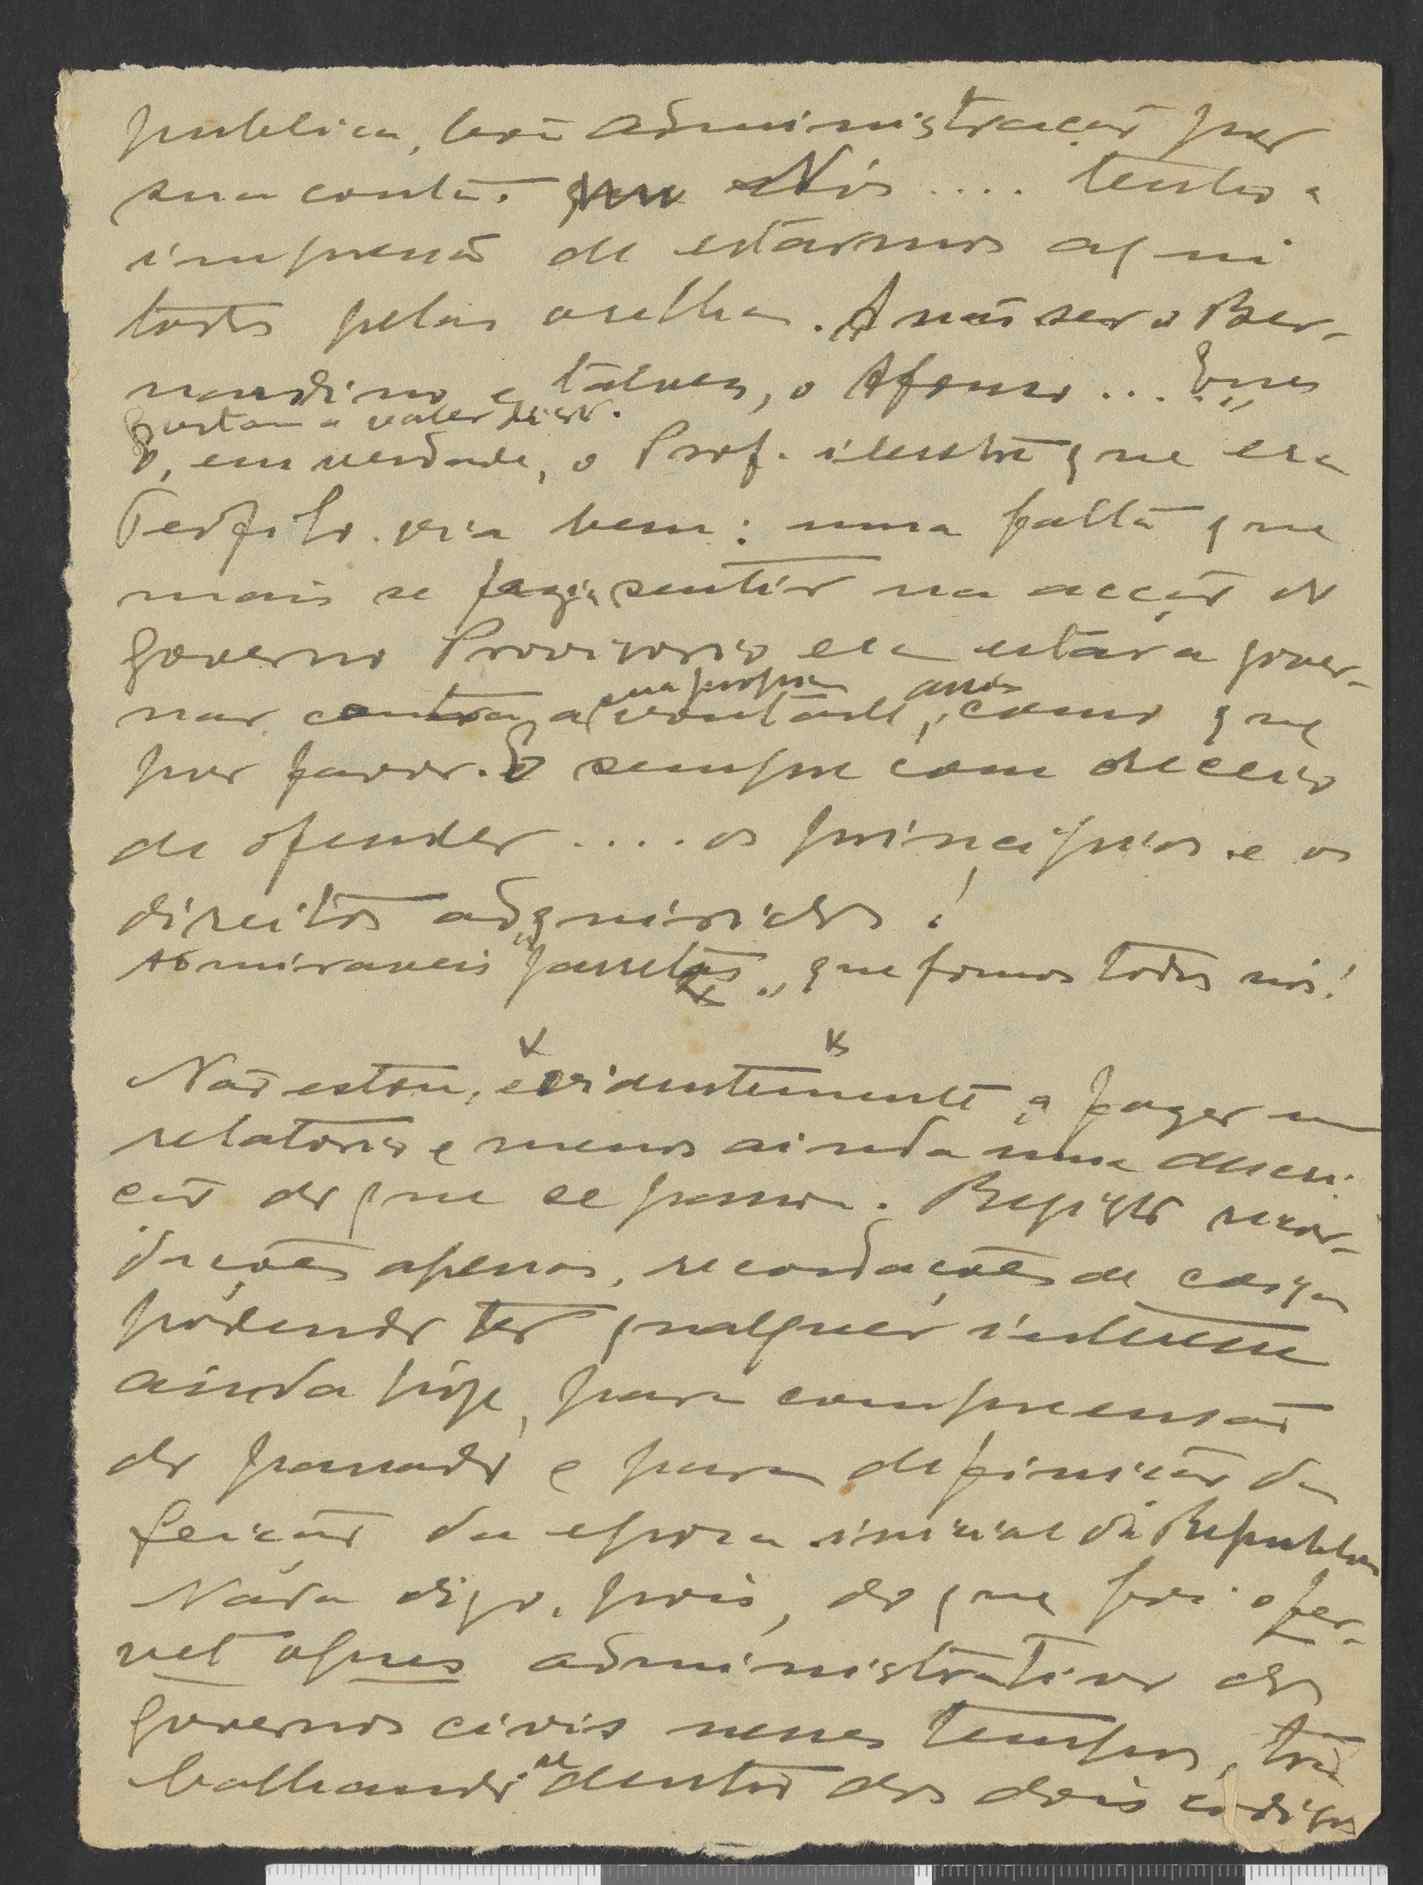 publica, boa administração por
sua conta. Nós .... tenho a
impressão de estarmos aqui
todos pelas orelhas. A não ser o Ber-
nardino e, talvez, o Afonso ... Esses
gostam a valer disso.
E, em verdade, o Prof. ilustre que era
Teofilo via bem: uma falta que
mais se fazia sentir na acção do
Governo Provisorio era estar a gover-
nar contra a sua propria vontade, assim como que
por favor. E sempre com receio
de ofender .... os principios e os
direitos adquiridos!
Admiraveis "patetas" que fomos todos nós!
Não estou, evidentemente, a fazer um
relatorio e menos ainda uma descri-
ção do que se passou. Registo recor-
dações apenas, recordações de cousas
podendo ter qualquer interesse
ainda hoje, para compreensão
do passado e para definição da
feição da epoca inicial da Republica
Nada digo, pois, do que foi o fer-
vet opus administrativo dos
governos civis nesses tempos, tra-
balhando dentro dos dois codigos